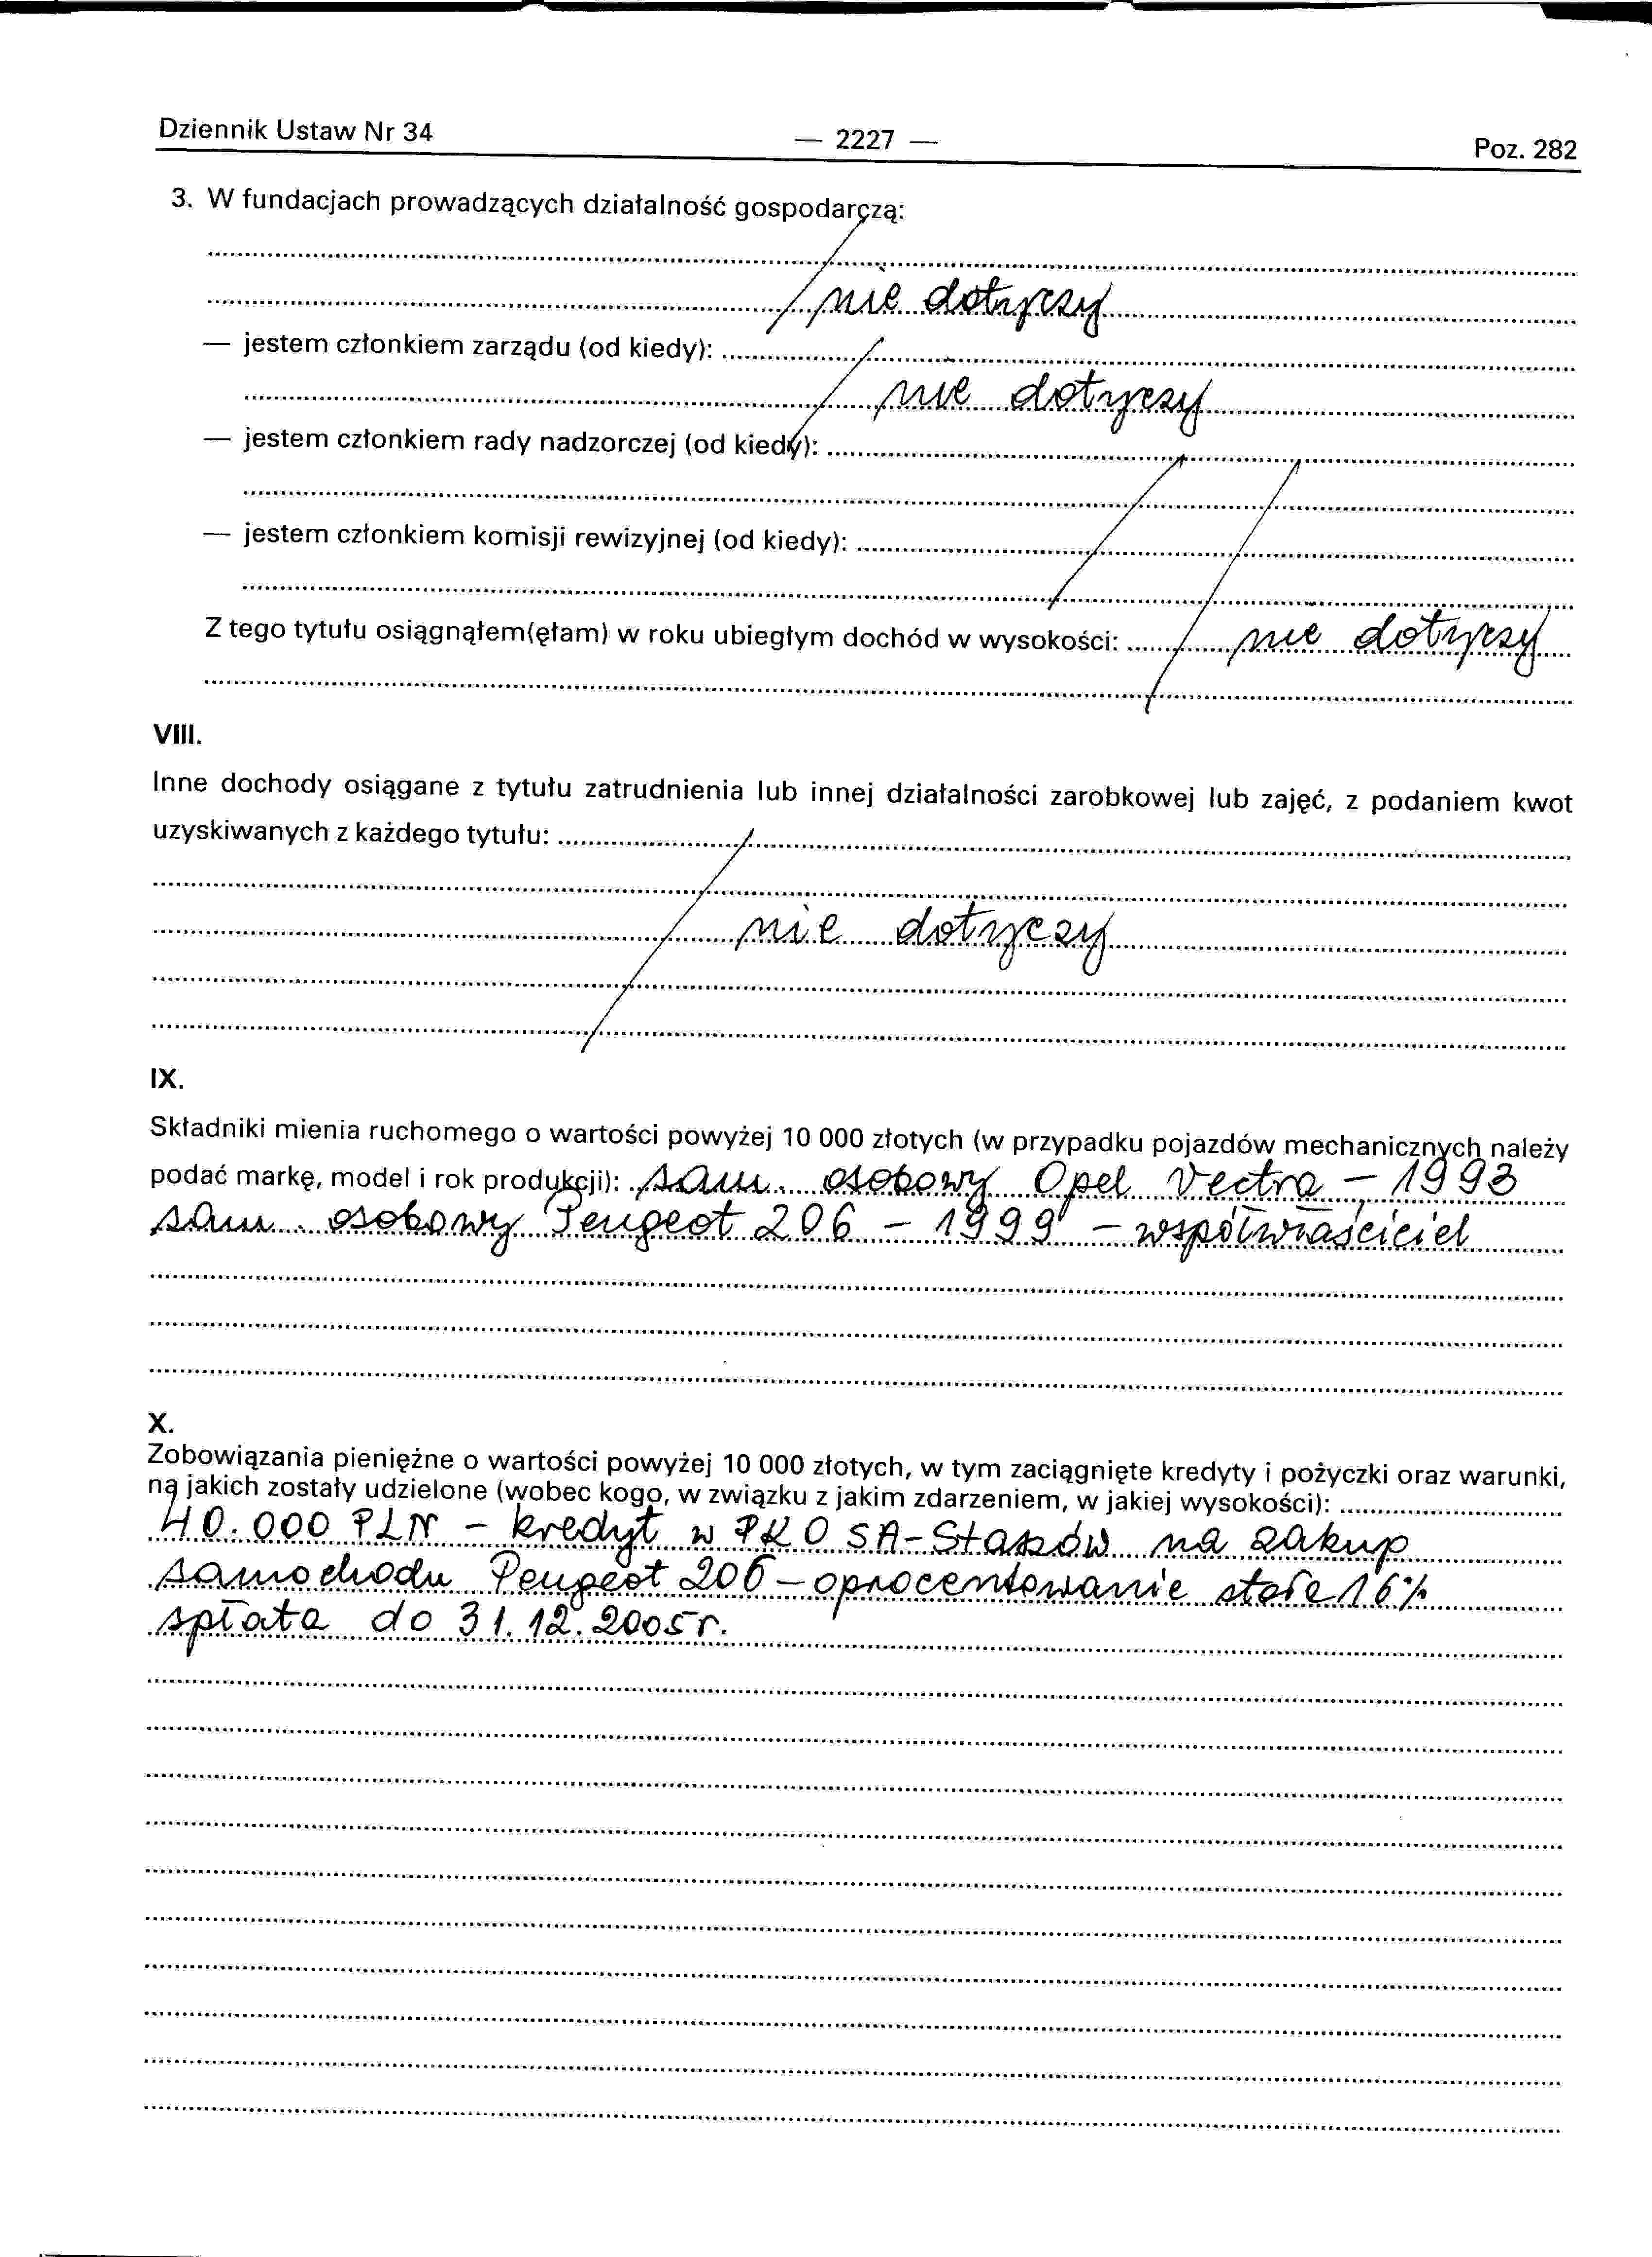 Dziennik Ustaw Nr 34 — 2227 — Poz. 282
3. W fundacjach prowadzących działalność gospodarczą:
nie dotyczy
— jestem członkiem zarządu (od kiedy):
nie dotyczy
— jestem członkiem rady nadzorczej (od kiedy):
— jestem członkiem komisji rewizyjnej (od kiedy):
Z tego tytułu osiągnąłem(ęłam) w roku ubiegłym dochód w wysokości: nie dotyczy
VIII.
Inne dochody osiągane z tytułu zatrudnienia lub innej działalności zarobkowej lub zajęć, z podaniem kwot
uzyskiwanych z każdego tytułu:
nie dotyczy
IX.
Składniki mienia ruchomego o wartości powyżej 10 000 złotych (w przypadku pojazdów mechanicznych należy
podać markę, model i rok produkcji): sam. osobowy Opel Vectra – 1993
sam. osobowy Peugeot 206 – 1999 – współwłaściciel
X.
Zobowiązania pieniężne o wartości powyżej 10 000 złotych, w tym zaciągnięte kredyty i pożyczki oraz warunki,
na jakich zostały udzielone (wobec kogo, w związku z jakim zdarzeniem, w jakiej wysokości):
40.000 PLN – kredyt w PKO SA – Staszów na zakup
samochodu Peugeot 206 – oprocentowanie stałe 16%
spłata do 31.12.2005r.